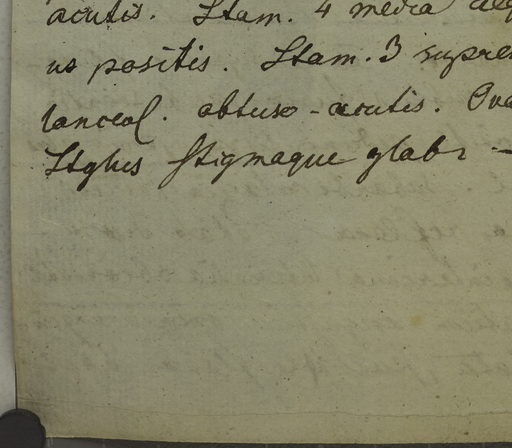 acutis. Stam. 4 media
us positis. Stam. 3 suprem
lanceol. obtuso-acutis. Ova
Stylus Stigmaque glabr -